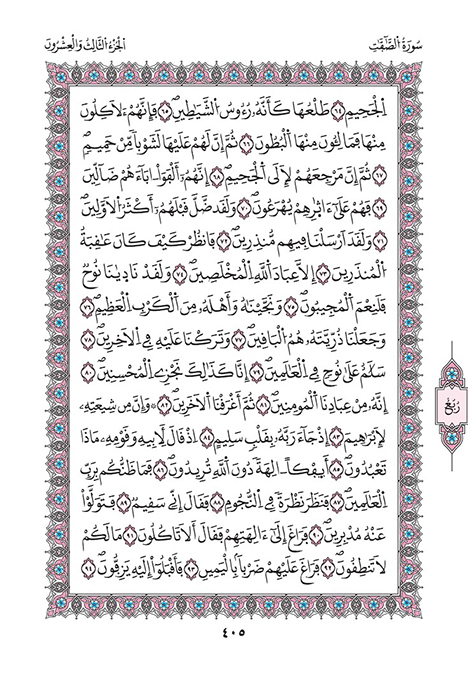 سُورَةُ الصَّٰٓفَّٰتِ
الجُزْءُ الثَّالِثُ وَالْعِشْرُونَ
اِ۬لْجَحِيمِ ٦٤ طَلْعُهَا كَأَنَّهُۥ رُءُوسُ اُ۬لشَّيَٰطِينِ ٦٥ فَإِنَّهُمْ لَأٓكِلُونَ
مِنْهَا فَمَالِـُٔونَ مِنْهَا اَ۬لْبُطُونَ ٦٦ ثُمَّ إِنَّ لَهُمْ عَلَيْهَا لَشَوْباٗ مِّنْ حَمِيمٖ
٦٧ ثُمَّ إِنَّ مَرْجِعَهُمْ لَإِلَى اَ۬لْجَحِيمِ ٦٨ إِنَّهُمُۥٓ أَلْفَوَاْ ءَابَآءَهُمْ ضَآلِّينَ
٦٩ فَهُمْ عَلَىٰٓ ءَاثٰ۪رِهِمْ يُهْرَعُونَ ٧٠ وَلَقَد ضَّلَّ قَبْلَهُمُۥٓ أَكْثَرُ اُ۬لَاوَّلِينَ
٧١ وَلَقَدَ اَرْسَلْنَا فِيهِم مُّنذِرِينَ ٧٢ فَانظُرْ كَيْفَ كَانَ عَٰقِبَةُ
اُ۬لْمُنذَرِينَ ٧٣ إِلَّا عِبَادَ اَ۬للَّهِ اِ۬لْمُخْلَصِينَ ٧٤ وَلَقَدْ نَادَيٰنَا نُوحٞ
فَلَنِعْمَ اَ۬لْمُجِيبُونَ ٧٥ وَنَجَّيْنَٰهُ وَأَهْلَهُۥ مِنَ اَ۬لْكَرْبِ اِ۬لْعَظِيمِ ٧٦
وَجَعَلْنَا ذُرِّيَّتَهُۥ هُمُ اُ۬لْبَاقِينَ ٧٧ وَتَرَكْنَا عَلَيْهِ فِے اِ۬لَاخِرِينَ ٧٨
سَلَٰمٌ عَلَىٰ نُوحٖ فِے اِ۬لْعَٰلَمِينَ ٧٩ إِنَّا كَذَٰلِكَ نَجْزِے اِ۬لْمُحْسِنِينَ ٨٠
إِنَّهُۥ مِنْ عِبَادِنَا اَ۬لْمُومِنِينَ ٨١ ثُمَّ أَغْرَقْنَا اَ۬لَاخَرِينَ ٨٢ وَإِنَّ مِن شِيعَتِهِۦ
لَإِبْرَٰهِيمَ ٨٣ إِذْ جَآءَ رَبَّهُۥ بِقَلْبٖ سَلِيمٍ ٨٤ اِذْ قَالَ لِأَبِيهِ وَقَوْمِهِۦ مَاذَا
تَعْبُدُونَ ٨٥ أَئِفْكاً اٰلِهَةٗ دُونَ اَ۬للَّهِ تُرِيدُونَ ٨٦ فَمَا ظَنُّكُم بِرَبِّ
اِ۬لْعَٰلَمِينَ ٨٧ فَنَظَرَ نَظْرَةٗ فِے اِ۬لنُّجُومِ ٨٨ فَقَالَ إِنِّے سَقِيمٞ ٨٩ فَتَوَلَّوْاْ
عَنْهُ مُدْبِرِينَ ٩٠ فَرَاغَ إِلَىٰٓ ءَالِهَتِهِمْ فَقَالَ أَلَا تَاكُلُونَ ٩١ مَا لَكُمْ
لَا تَنطِقُونَ ٩٢ فَرَاغَ عَلَيْهِمْ ضَرْباَۢ بِالْيَمِينِ ٩٣ فَأَقْبَلُوٓاْ إِلَيْهِ يَزِفُّونَ ٩٤
رُبُعٌ
٤٠٥